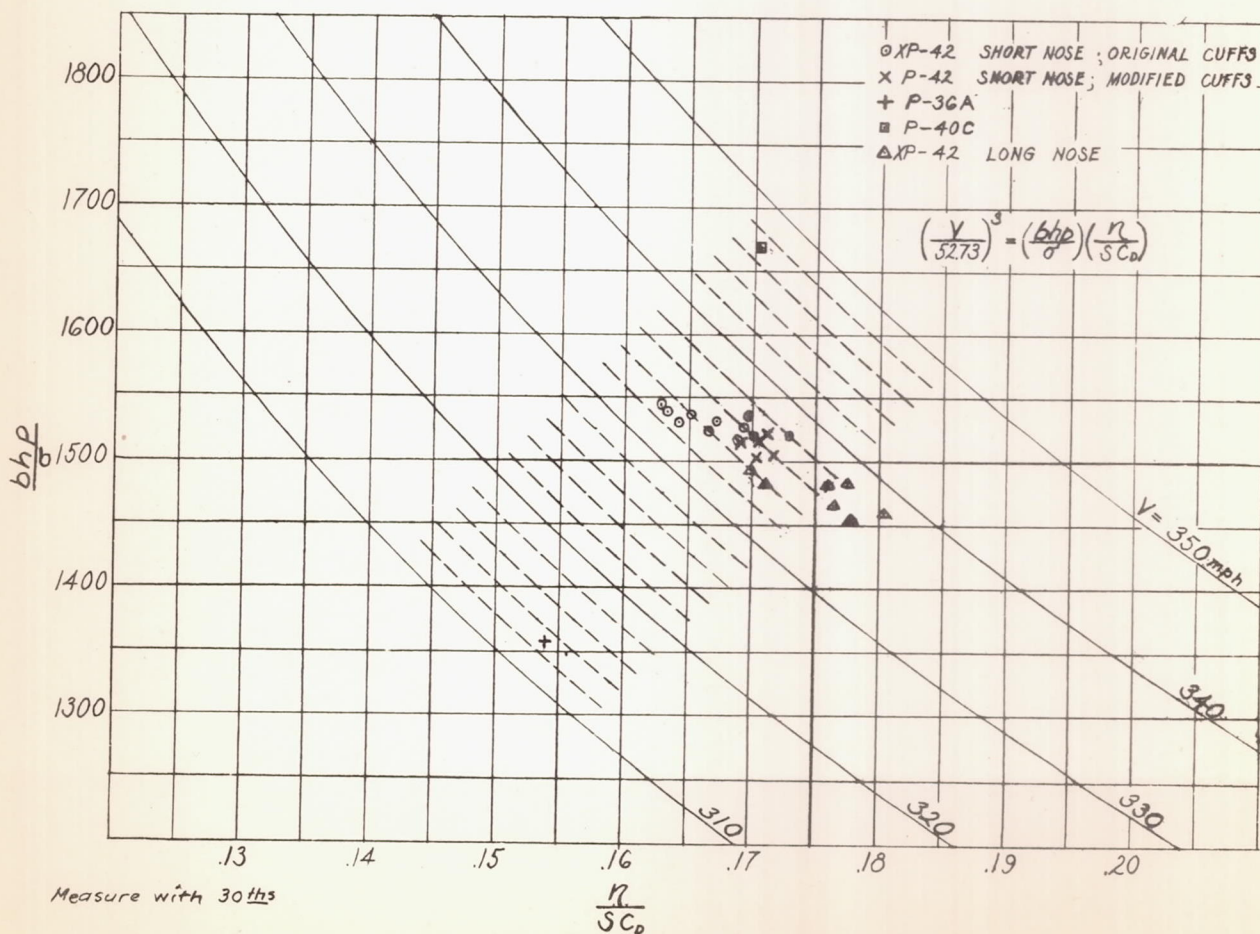 ⊙ XP-42 SHORT NOSE; ORIGINAL CUFFS
× P-42 SHORT NOSE; MODIFIED CUFFS
+ P-36A
▪ P-40C
△ XP-42 LONG NOSE
(V/52.73)³ = (bhp/σ)(η/SC_D)
1800
1700
1600
1500
1400
1300
bhp/σ
V = 350 mph
340
330
320
310
.13 .14 .15 .16 .17 .18 .19 .20
Measure with 30ths
η/SC_D